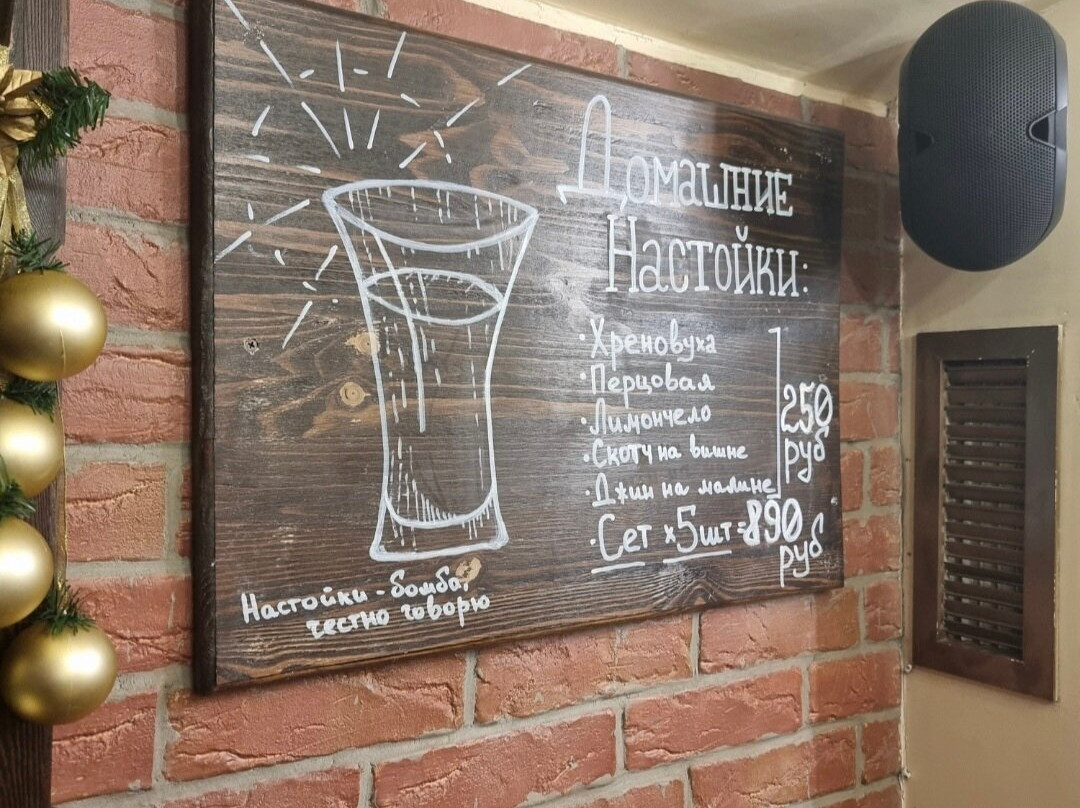 Домашние
Настойки:
· Хреновуха
· Перцовая
· Лимончело
· Скотч на вишне
· Джин на малине
250
руб
· Сет х5шт=890
руб
Настойки - бомба,
честно говорю